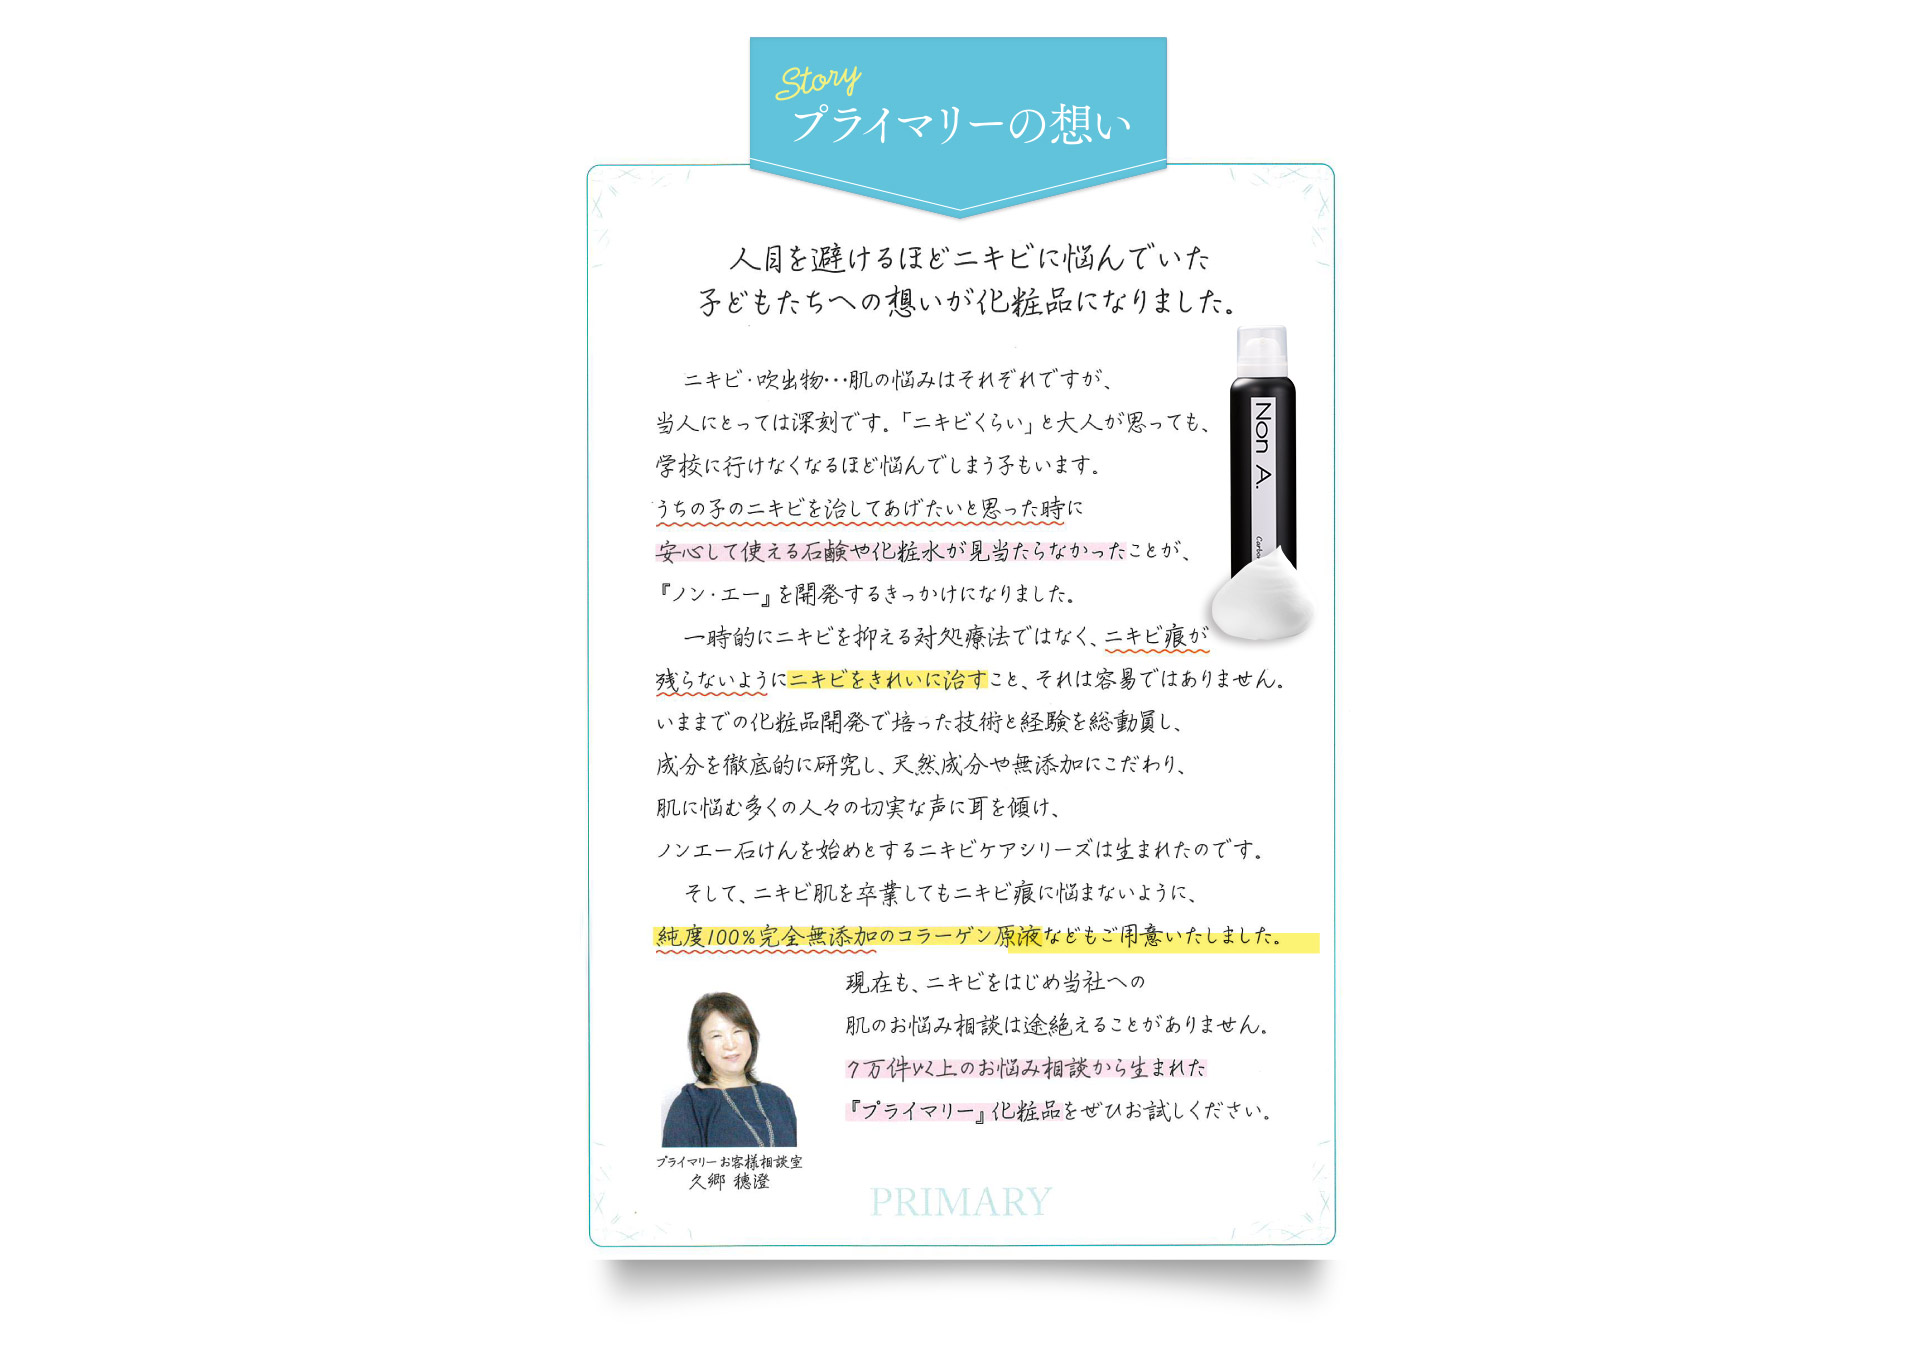 Story
プライマリーの想い
人目を避けるほどニキビに悩んでいた
子どもたちへの想いが化粧品になりました。
ニキビ・吹出物･･･肌の悩みはそれぞれですが、
当人にとっては深刻です。「ニキビくらい」と大人が思っても、
学校に行けなくなるほど悩んでしまう子もいます。
うちの子のニキビを治してあげたいと思った時に
安心して使える石鹸や化粧水が見当たらなかったことが、
『ノン・エー』を開発するきっかけになりました。
一時的にニキビを抑える対処療法ではなく、ニキビ痕が
残らないようにニキビをきれいに治すこと、それは容易ではありません。
いままでの化粧品開発で培った技術と経験を総動員し、
成分を徹底的に研究し、天然成分や無添加にこだわり、
肌に悩む多くの人々の切実な声に耳を傾け、
ノンエー石けんを始めとするニキビケアシリーズは生まれたのです。
そして、ニキビ肌を卒業してもニキビ痕に悩まないように、
純度100%完全無添加のコラーゲン原液などもご用意いたしました。
現在も、ニキビをはじめ当社への
肌のお悩み相談は途絶えることがありません。
7万件以上のお悩み相談から生まれた
『プライマリー』化粧品をぜひお試しください。
プライマリーお客様相談室
久郷 穂澄
PRIMARY
Non A.